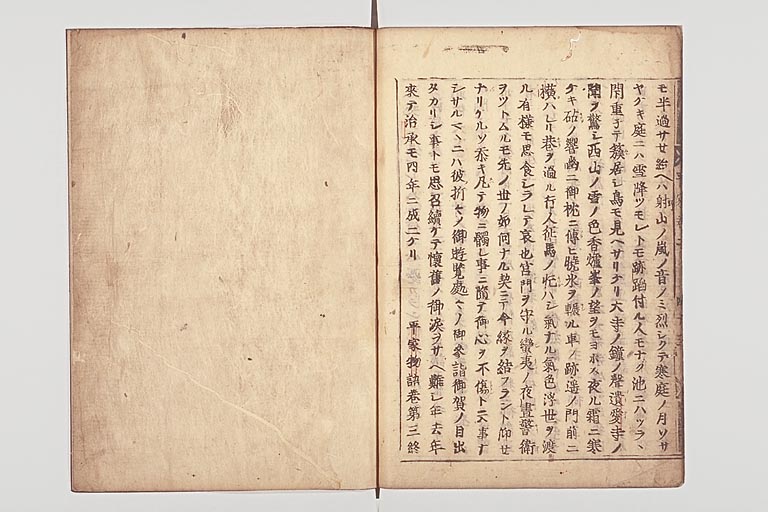 モ半過サセ給ヘハ射山ノ嵐ノ音ノミ烈シクテ寒庭ノ月ソサ
ヤケキ庭ニハ雪降ツモレトモ跡蹈付ル人モナク池ニハツラヽ
閇重子テ簇居シ鳥モ見ヘサリケリ大寺ノ鐘ノ聲遺愛寺ノ
聞ヲ驚シ西山ノ雪ノ色香爐峯ノ望ヲモヨホス夜ル霜ニ寒
ケキ砧ノ響幽ニ御枕ニ傳ヒ曉氷ヲ輾ル車ノ跡遥ノ門前ニ
横ハレリ巷ヲ過ル行人征馬ノ忙ハシ氣ナル氣色浮世ヲ渡
ル有樣モ思食シラレテ哀也宮門ヲ守ル蠻夷ノ夜晝警衛
ヲツトムルモ先ノ世ノ如何ナル契ニテ今縁ヲ結フラント仰セ
ナリケルソ忝キ凡テ物ニ觸レ事ニ隨テ御心ヲ不傷ト云事ナ
シサルマヽニハ彼折々ノ御遊覧處々ノ御参詣御賀ノ目出
タカリシ事トモ思召續ケテ懷舊ノ御涙ヲサヘ難シ年去年
來テ治承モ四年ニ成ニケリ
平家物語卷第三終